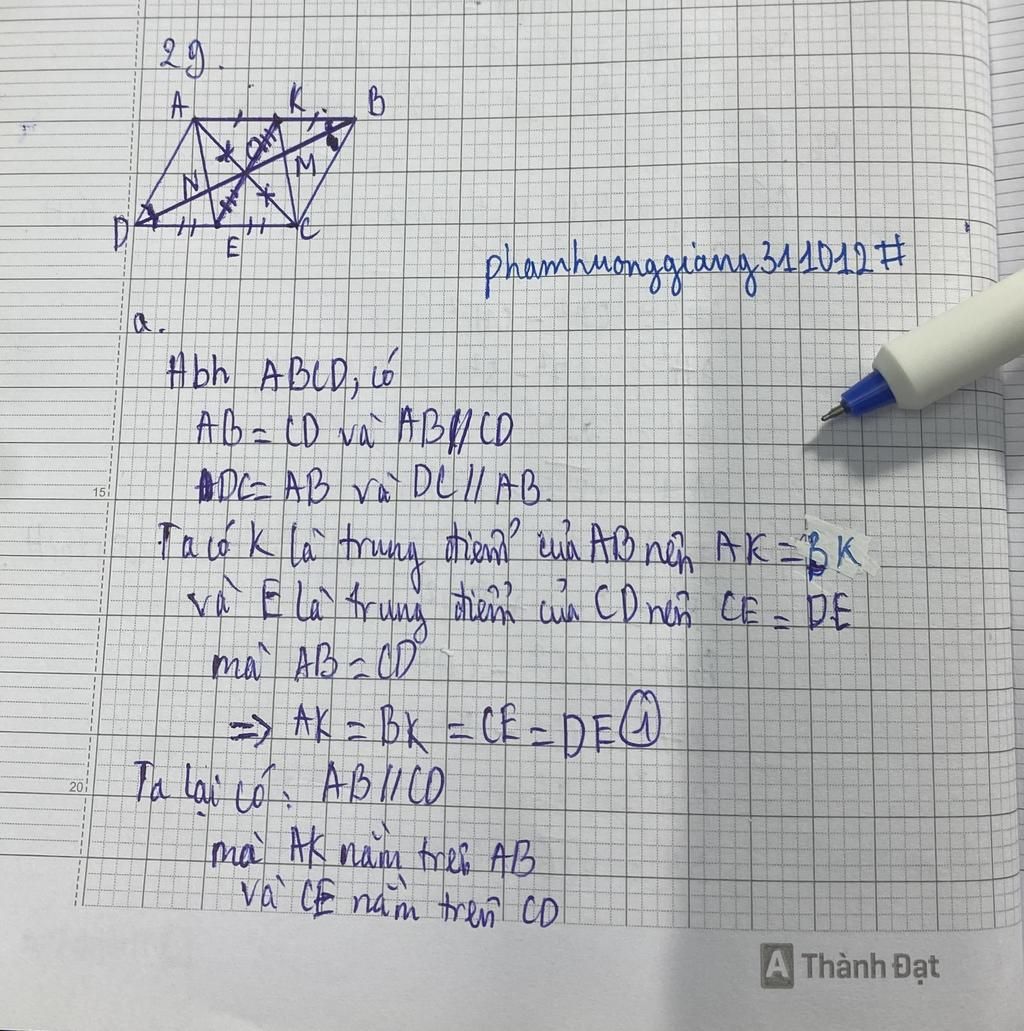 29.
A K B
O
N M
D E C
phamhuonggiang311012#
a.
Hbh ABCD, có
AB = CD và AB // CD
DC = AB và DC // AB.
15
Ta có K là trung điểm của AB nên AK = BK
và E là trung điểm của CD nên CE = DE
mà AB = CD
=> AK = BK = CE = DE ①
20
Ta lại có: AB // CD
mà AK nằm trên AB
và CE nằm trên CD
A Thành Đạt